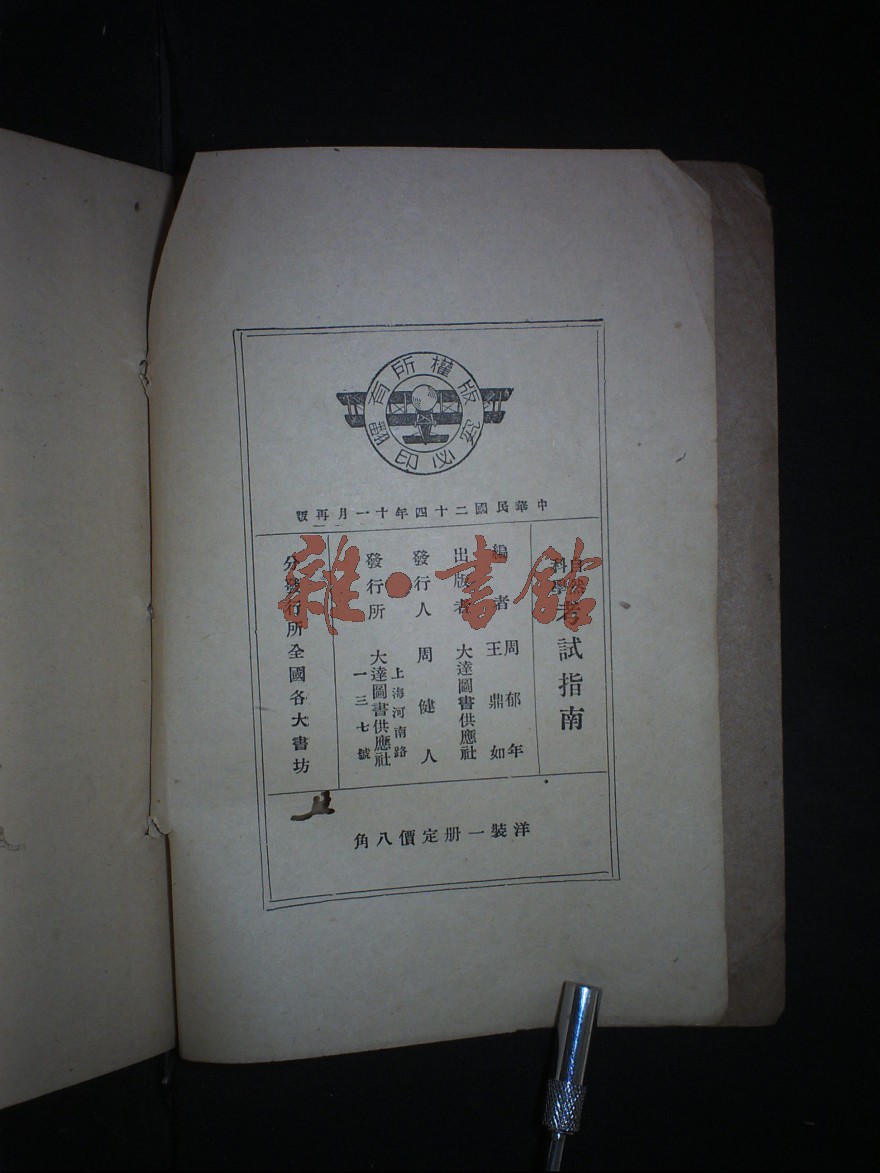 版權所有
翻印必究
中華民國二十四年十一月再版
自然
科學
考試指南
編者 周郁年
王鼎如
出版者 大達圖書供應社
發行人 周健人
發行所 大達圖書供應社
上海河南路
一三七號
分發行所全國各大書坊
洋裝一册定價八角
雜·書館